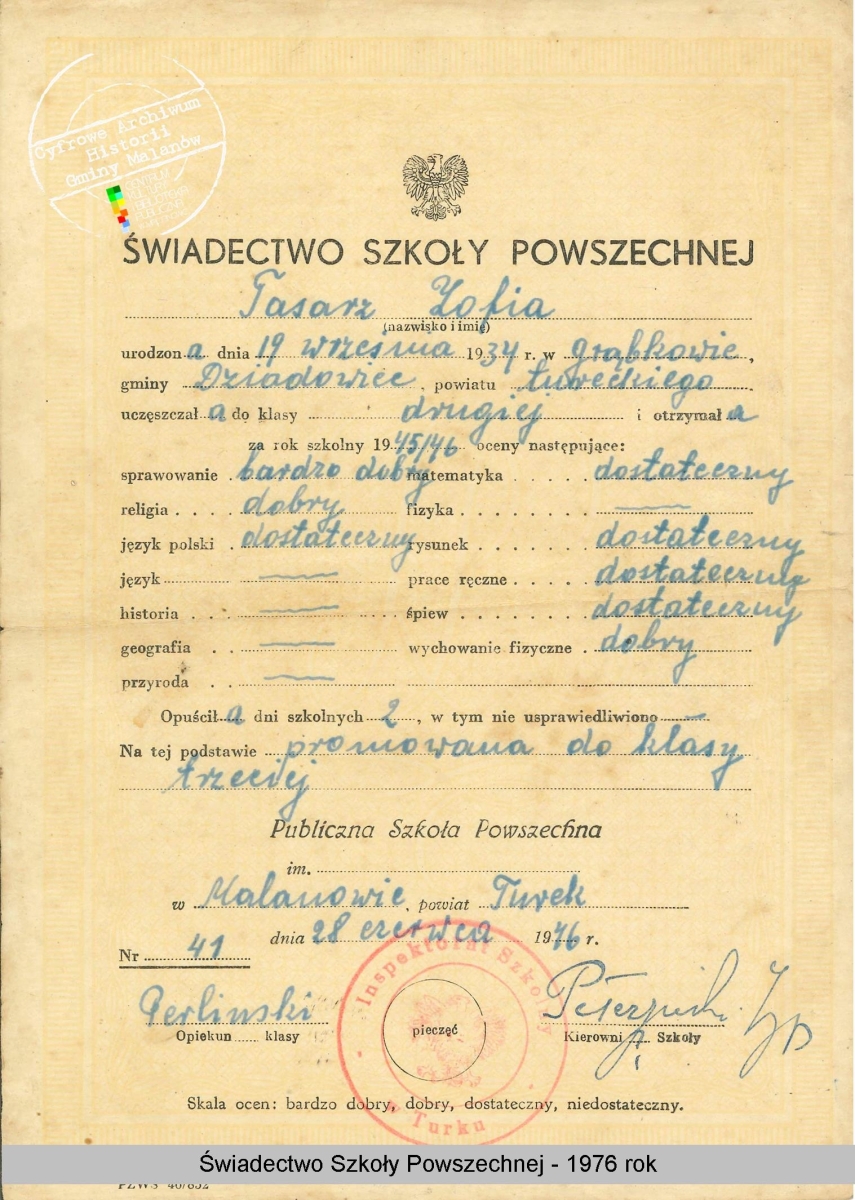 Cyfrowe Archiwum
Historii
Gminy Malanów
ŚWIADECTWO SZKOŁY POWSZECHNEJ
Tasarz Zofia
(nazwisko i imię)
urodzona dnia 19 września 1934 r. w Grąbkowie,
gminy Dziadowice, powiatu tureckiego
uczęszczała do klasy drugiej i otrzymała
za rok szkolny 1945/46 oceny następujące:
sprawowanie . bardzo dobry matematyka . . . . . dostateczny
religia . . . . dobry fizyka . . . . . . . —
język polski . dostateczny rysunek . . . . . . dostateczny
język — prace ręczne . . . . dostateczny
historia . . . — śpiew . . . . . . . dostateczny
geografia . . — wychowanie fizyczne . dobry
przyroda . . —
Opuściła dni szkolnych 2, w tym nie usprawiedliwiono —
Na tej podstawie promowana do klasy
trzeciej
Publiczna Szkoła Powszechna
im.
w Malanowie, powiat Turek
dnia 28 czerwca 1946 r.
Nr 41
Inspektorat Szkolny
w Turku
pieczęć
Perlinski
Opiekun klasy
Kierowni Szkoły
Skala ocen: bardzo dobry, dobry, dostateczny, niedostateczny.
Świadectwo Szkoły Powszechnej - 1976 rok